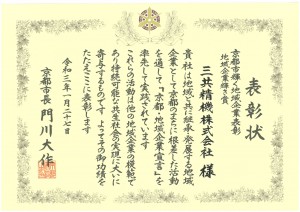 表彰状
京都市輝く地域企業表彰
地域企業輝き賞
三共精機株式会社 様
貴社は地域と共に継承発展する地域
企業として京都のまちに根差した活動
を通して「京都・地域企業宣言」を
率先して実践されています
これらの活動は他の地域企業の模範で
あり持続可能な共生社会の実現に大いに
寄与するものです よってその御功績を
たたえここに表彰します
令和三年一月二十七日
京都市長 門川大作